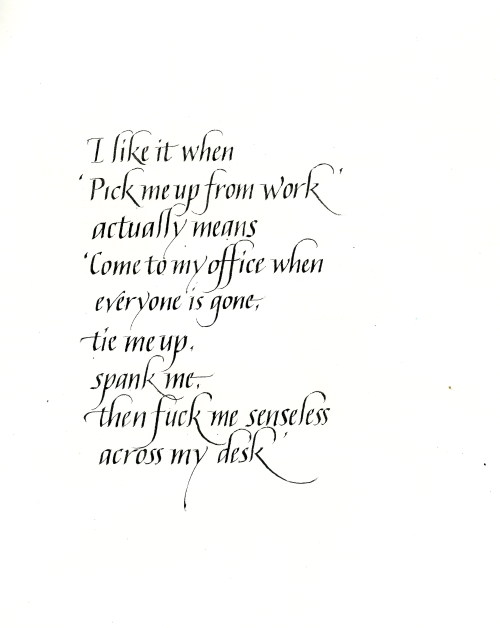 I like it when
'Pick me up from work'
actually means
'Come to my office when
everyone is gone,
tie me up,
spank me,
then fuck me senseless
across my desk'